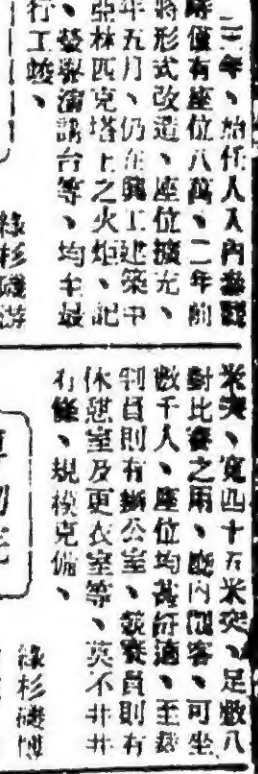 二三年、始任人入內參觀
時僅有座位八萬、二年前
將形式改造、座位擴充、
年五月、仍在興工建築中
亞林匹克塔上之火炬、記
、發獎演講台等、均在最
行工竣、
綠杉磯游
米突、寬四十五米突、足敷八
對比賽之用、廳內閱客、可坐
數千人、座位均甚舒適、至裁
判員則有辦公室、競賽員則有
休憩室及更衣室等、莫不井井
有條、規模克備、
綠杉磯博